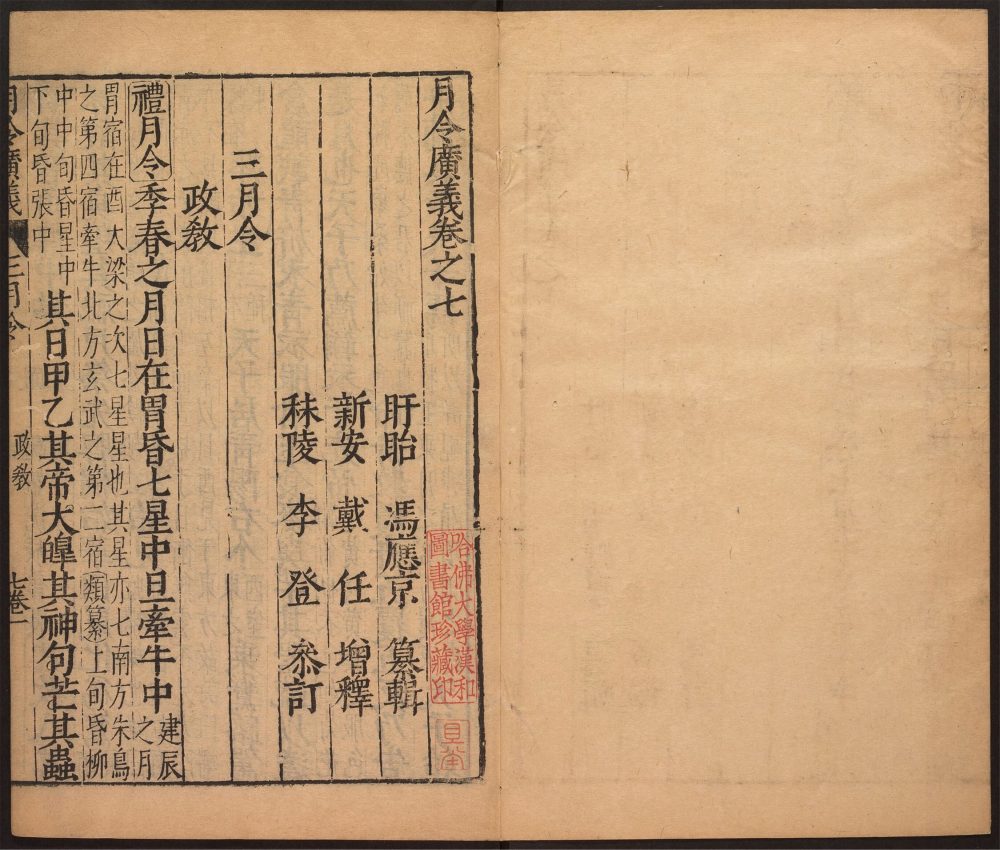 月令廣義卷之七
盱眙 馮應京 纂輯
新安 戴任 增釋
秣陵 李登 叅訂
哈佛大學漢和
圖書館珍藏印
三月令
政敎
禮月令季春之月日在胃昏七星中旦牽牛中建辰
之月
胃宿在酉大梁之次七星星也其星亦七南方朱鳥
之第四宿牽牛北方玄武之第二宿類纂上旬昏柳
中中旬昏星中
下旬昏張中
其日甲乙其帝大皥其神句芒其蟲
月令廣義
三月令
政敎
七卷
一